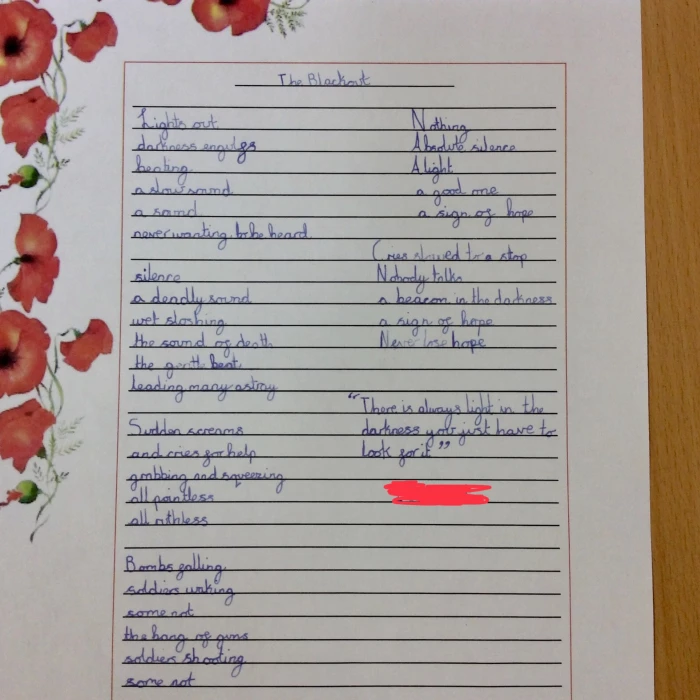 The Blackout
Lights out
darkness engulgs
beating
a slow sound
a sound
never wanting to be heard
silence
a deadly sound
wet sloshing
the sound of death
the gentle beat
leading many astray
Sudden screams
and cries for help
grabbing and squeezing
all pointless
all ruthless
Bombs falling
soldiers waking
some not
the bang of guns
soldiers shooting
some not
Nothing
Absolute silence
A light
a good one
a sign of hope
Cries slowed to a stop
Nobody talks
a beacon in the darkness
a sign of hope
Never lose hope
"There is always light in the
darkness you just have to
look for it"